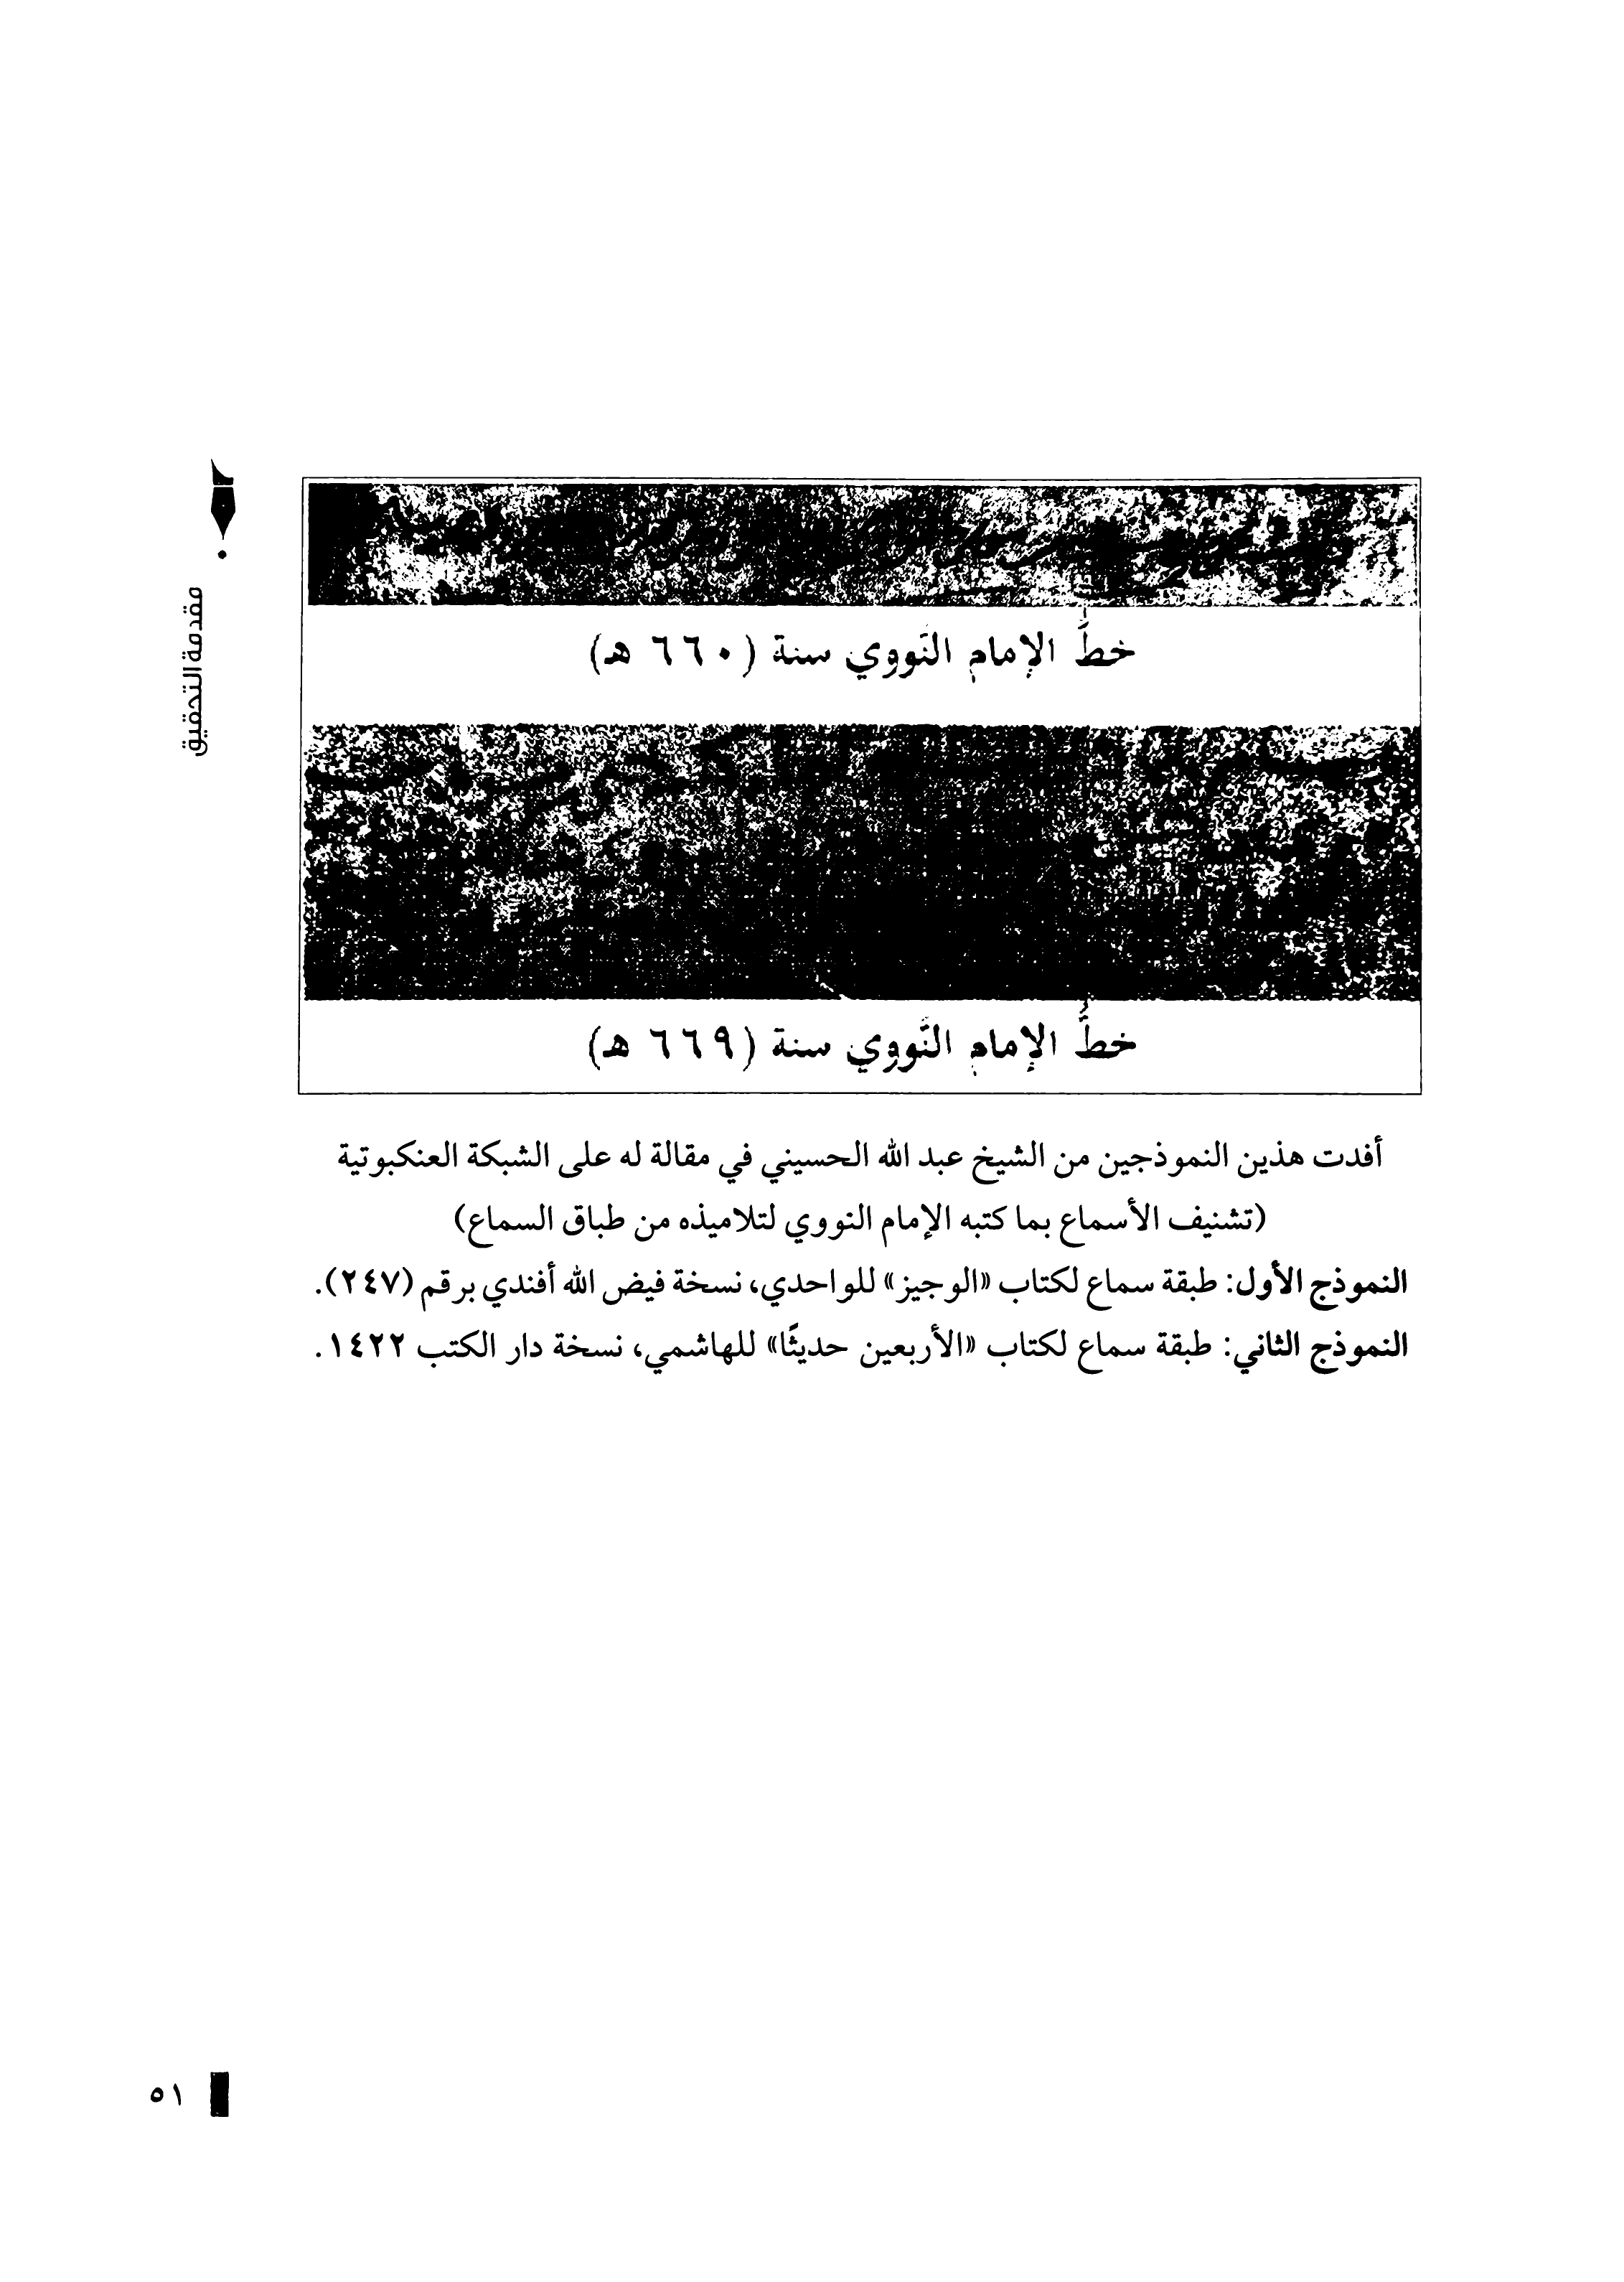 مقدمة التحقيق
خطُّ الإمام النَّووي سنة (٦٦٠ هـ)
خطُّ الإمام النَّووي سنة (٦٦٩ هـ)
أفدت هذين النموذجين من الشيخ عبد الله الحسيني في مقالة له على الشبكة العنكبوتية
(تشنيف الأسماع بما كتبه الإمام النووي لتلاميذه من طباق السماع)
النموذج الأول: طبقة سماع لكتاب «الوجيز» للواحدي، نسخة فيض الله أفندي برقم (٢٤٧).
النموذج الثاني: طبقة سماع لكتاب «الأربعين حديثًا» للهاشمي، نسخة دار الكتب ١٤٢٢.
٥١